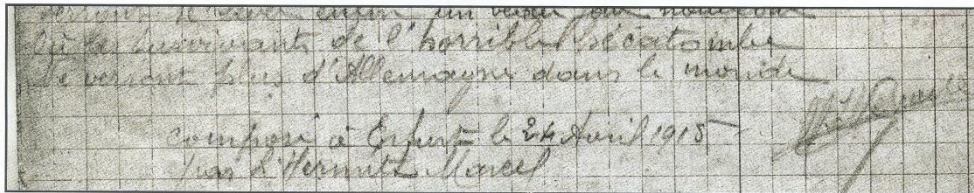 verront se lever enfin un
Où les survivants de l'horrible hécatombe
Ne verront plus d'Allemagne dans le monde
Composé à Erfurt le 24 Avril 1915
par L'Hermitte Marcel